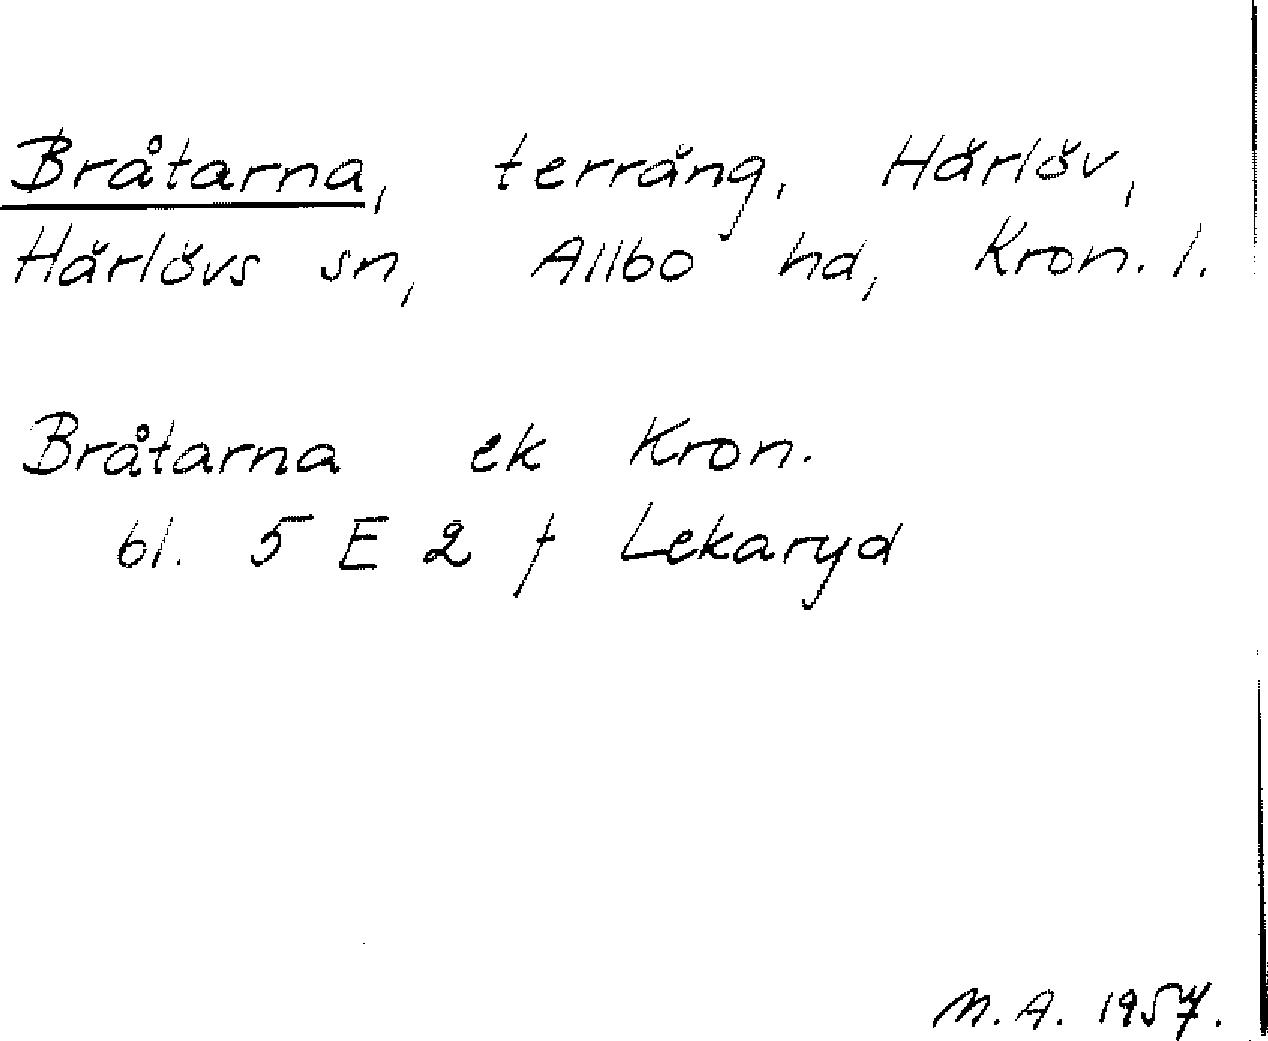 Bråtarna, terräng, Härlöv,
Härlövs sn, Allbo hd, Kron. l.
Bråtarna ek Kron.
bl. 5 E 2 f Lekaryd
M.A. 1957.